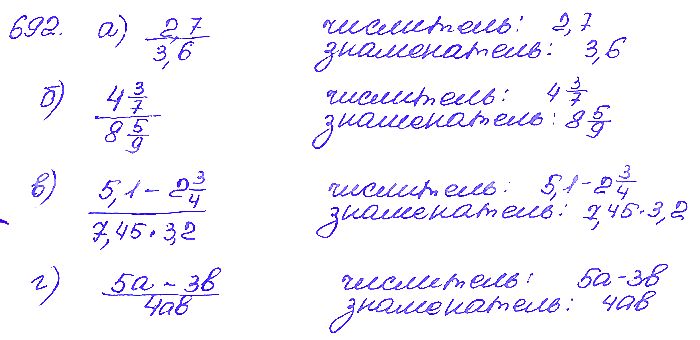 692. а) 2,7/3,6 числитель: 2,7
знаменатель: 3,6
б) 4 3/7 / 8 5/9 числитель: 4 3/7
знаменатель: 8 5/9
в) 5,1 - 2 3/4 / 7,45 · 3,2 числитель: 5,1 - 2 3/4
знаменатель: 7,45 · 3,2
г) 5а - 3в / 4ав числитель: 5а - 3в
знаменатель: 4ав